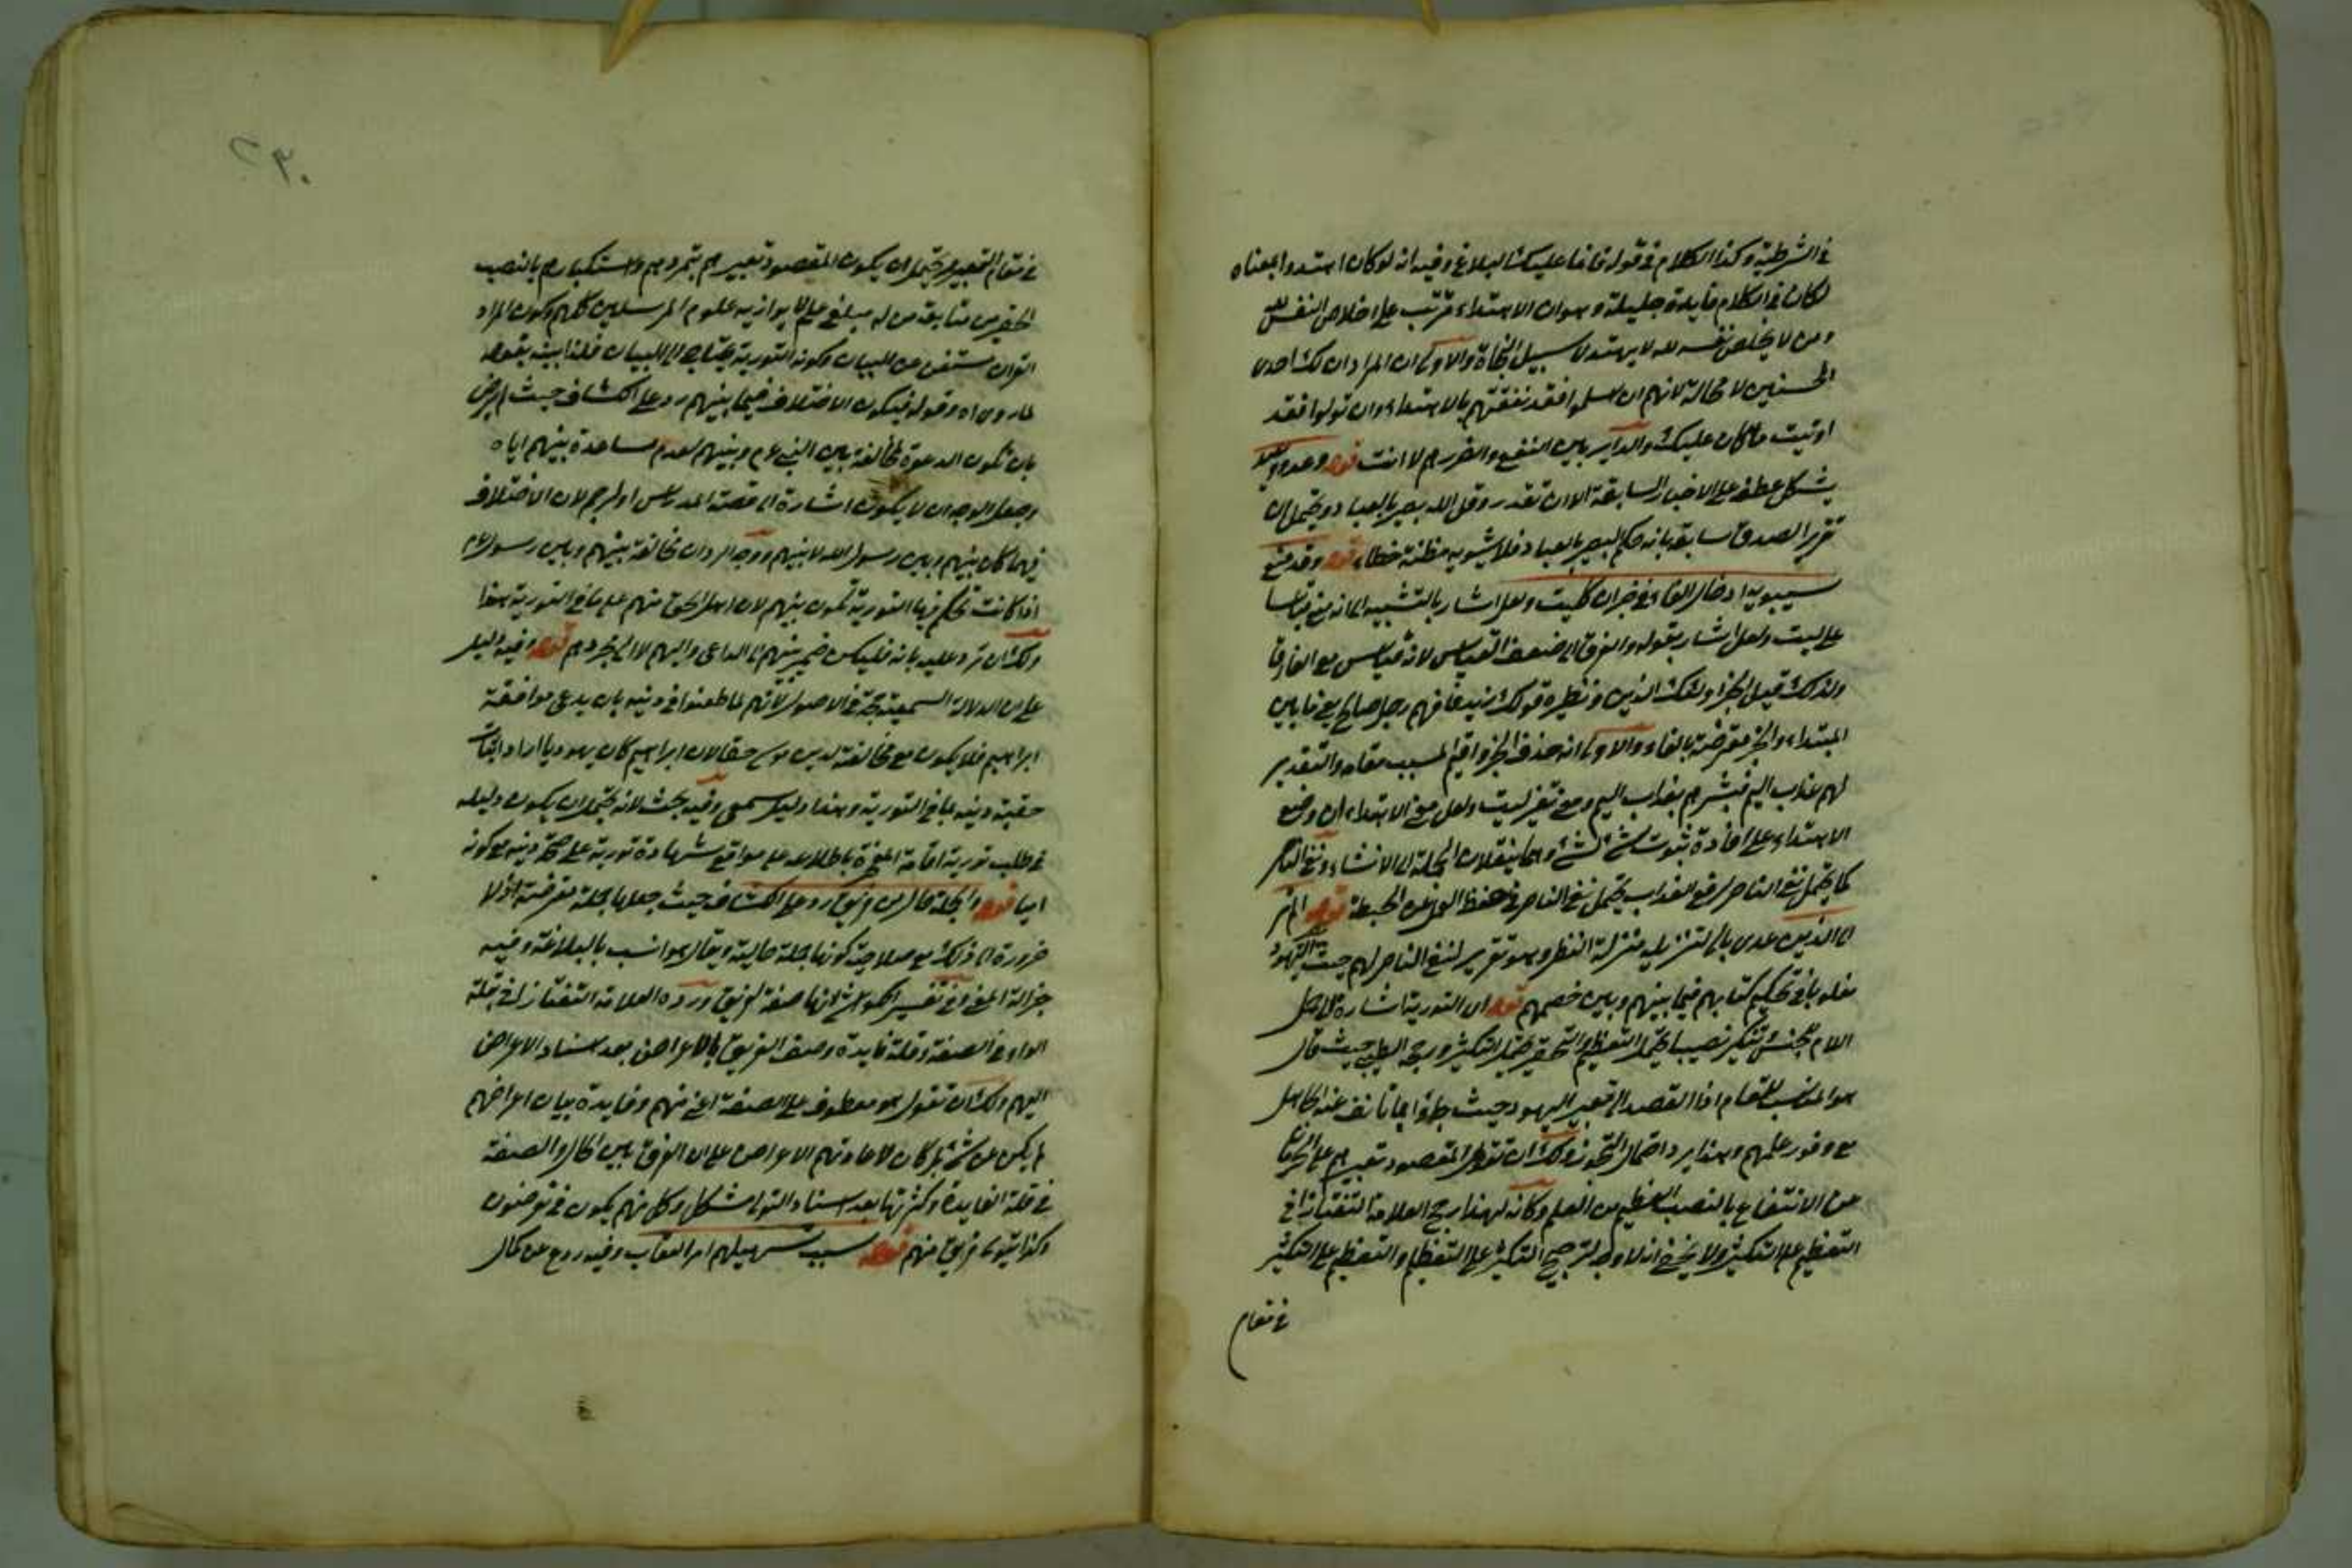 في الشرطية وكذا الكلام في قوله فانما عليك البلاغ وفيه انه لو كان اهتدوا بمعناه
لكان في الكلام فايدة جليلة وهو ان الاهتداء مترتب على اخلاص النفس لله
ومن لا يخلص نفسه لله لا يهتد لا سبيل النجاة والاولى ان المراد ان لك احدى
الحسنيين لا محالة لانهم ان اسلموا فقد نفعتهم بالاهتداء وان تولوا فقد
اوتيت ما كان عليك والداير بين النفع والضرر هم لا انت قوله وعد ووعيد
يشكل عطفه على الاخبار السابقة الا ان تقدر وقل الله بصير بالعباد ويحتمل ان
تقرير الصدق سابقه بانه حكم البصير بالعباد فلا يشوبه مظنة خطاء قوله وقد منع
سيبويه ادخال الفاء في خبر ان كليت ولعل اشار بالتشبيه الى انه منع قياسا
على ليت ولعل اشار بقوله والفرق الى ضعف القياس لانه قياس مع الفارق
ولذلك قيل الخبر اولئك الذين ونظيره قولك زيد فافهم رجل صالح يعني ما بين
المبتداء والخبر معترضة بالفاء والاولى انه حذف الخبر واقيم المسبب مقامه والتقدير
لهم عذاب اليم فبشرهم بعذاب اليم ومعنى تغير ليت ولعل معنى الابتداء ان وضع
الابتداء على افادة ثبوت شئ لشئ وهما ينقلان الجملة الى الانشاء ونفي الناصر
كما يحتمل نفي الناصر لرفع العذاب يحتمل نفي الناصر في حفظ العمل عن الحبطة قوله الم تر
الى الذين عدى بالى لتنزيله منزلة النظر وهو تقرير لنفي الناصر لهم حيث
مغلوبا في تحكيم كتابهم فيما بينهم وبين خصمهم قوله اى التورية اشارة الى
اللام للجنس تنكير نصيبا يحتمل التعظيم والتحقير يحتمل التكثير ورجحه الطيبي حيث قال
هو المناسب للمقام اذا القصد الى تعيير اليهود حيث
مع وفور علمهم وبهذا يرد احتمال التجوز ولك ان تقول المقصود تعييرهم على الحرمان
عن الانتفاع بالنصيب العظيم من العلم وكانه لهذا رجح العلامة التفتازاني
التعظيم على التكثير ولا يخفى انه لا وجه لترجيح التكثير على التعظيم والتعظيم على التكثير
في مقام
٢٩٠
في مقام التعيير ويحتمل ان يكون المقصود تعييرهم بتمردهم واستكبارهم بالنصيب
الحقير من متابعة من له مبلغ علم لا يوازيه علوم المرسلين كلهم وكون المراد
القران مستغن عن البيان وكونه التورية يحتاج الى البيان فلذا بينه بقوله
لما روى اه وقوله فيكون الاختلاف فيما بينهم رد على الكشاف حيث لم يرض
بان تكون الدعوة لمخالفة بين النبي عم وبينهم لعدم مساعدة بينهم اياه
وجعل الوجه ان لا يكون اشارة الى قصة المدراس او الرجم لان الاختلاف
فيهما كان بينهم وبين رسول الله لا بينهم ووجه الرد ان مخالفة بينهم وبين رسول الله
اذا كانت تحكم فيها التورية تكون بينهم لان اهل الحق منهم على ما في التورية هذا
ولك ان ترد عليه بانه فليكن ضمير بينهم الى الداعى واليهم لا الى مجردهم قوله وفيه دليل
على ان الدلالة السمعية حجة في الاصول لانهم لما طعنوا في دينه بان يدعى موافقة
ابراهيم فلا يكون مع مخالفته لدين موسى حقا لان ابراهيم كان يهوديا اراد اثبات
حقية دينه بما في التورية وهذا دليل سمعى وفيه بحث لانه يحتمل ان يكون دليله
في طلب تورية اقامة المعجزة باطلاعه على مواقع شهادة تورية على صحة دينه مع كونه
اميا قوله والجملة حال من فريق رد على الكشاف حيث جعلها جملة معترضة اذ لا
ضرورة الى ذلك مع صلاحية كونها جملة حالية ويقال هو انسب بالبلاغة وفيه
جزالة المعنى وفي تفسير الكواشي انها صفة لفريق ورده العلامة التفتازاني بقلة
الواو في الصفة وقلة فايدة وصف الفريق بالاعراض بعد اسناد الاعراض
اليهم ولك ان تقول هو معطوف على الصفة اعنى منهم وفايدة بيان اعراضهم
لم يكن عن شئ بل كان لاعادتهم الاعراض على ان الفرق بين الحال والصفة
في قلة الفايدة وكثرتها بعد اسناد التولى مشكل وكل منهم يكون في معرضون
وكذا يتولى فريق منهم قوله بسبب تسهيلهم امر العقاب وفيه ردع عن كمال